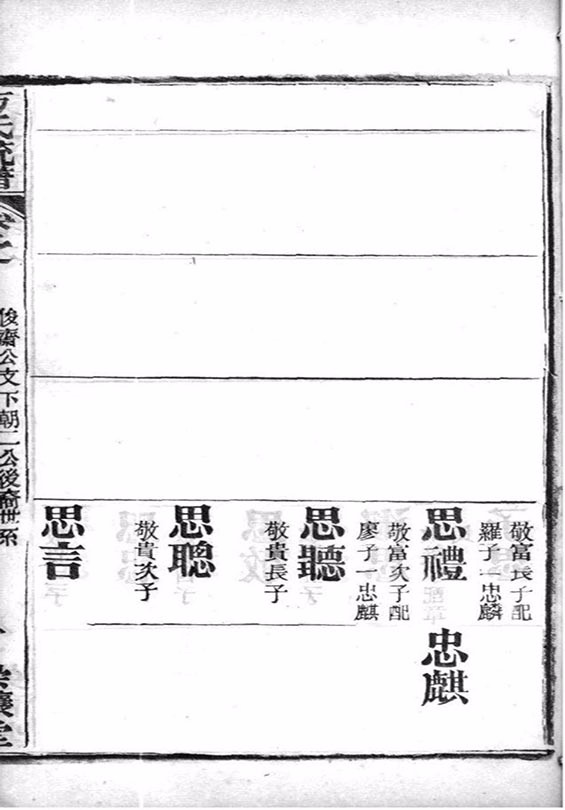 敬富長子配
羅子一忠麟
思禮
忠麒
敬富次子配
廖子一忠麒
思聽
敬貴長子
思聰
敬貴次子
思言
俊齋公文下朝二公後裔世系